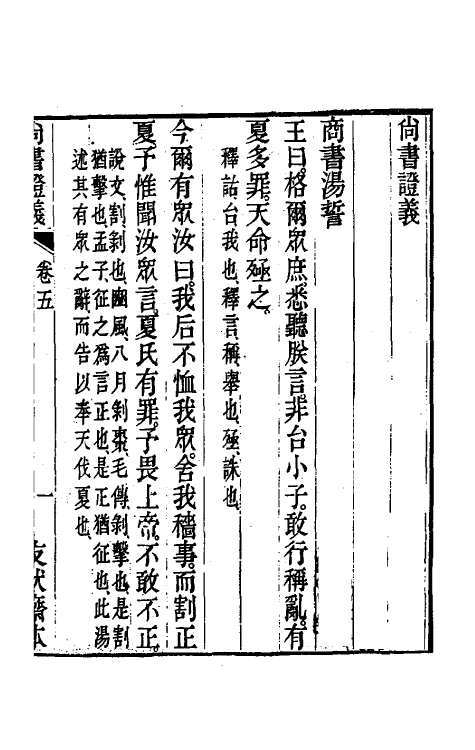 尙書證義
商書湯誓
王曰格爾眾庶悉聽朕言非台小子敢行稱亂有
夏多罪天命殛之
釋詁台我也釋言稱舉也殛誅也
今爾有眾汝曰我后不恤我眾舍我穡事而割正
夏予惟聞汝眾言夏氏有罪予畏上帝不敢不正
說文割剝也豳風八月剝棗毛傳剝擊也是割
猶擊也孟子征之爲言正也是正猶征也此湯
述其有眾之辭而告以奉天伐夏也
尙書證義 卷五 一 友伏齋本